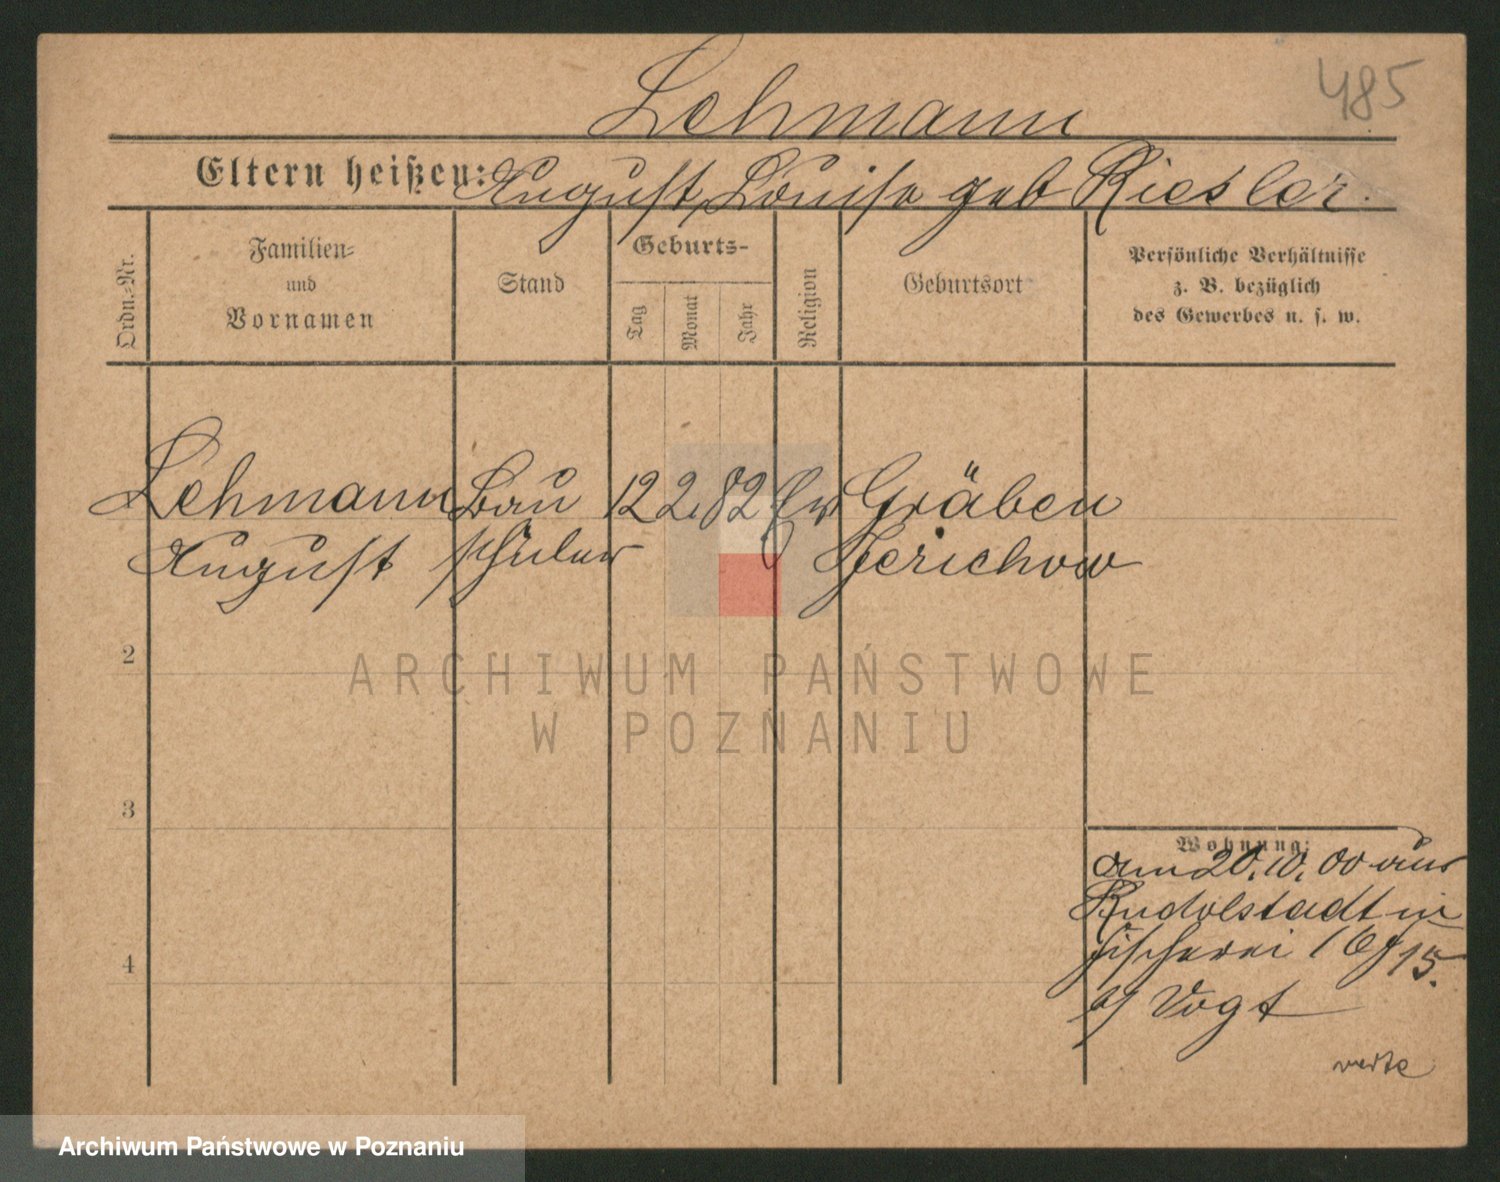 485
Lehmann
Eltern heißen: August, Louise geb Riesler.
Ordn.-Nr.
Familien-
und
Vornamen
Stand
Geburts-
Tag
Monat
Jahr
Religion
Geburtsort
Persönliche Verhältnisse
z. B. bezüglich
des Gewerbes u. s. w.
Lehmann Bau 12 2. 82 Ev Gräben
August schüler Jerichow
2
ARCHIWUM PAŃSTWOWE
W POZNANIU
3
Wohnung:
am 20. 10. 00 aus
Rudolstadt in
Fischerei 15.
b/ Vogt
4
verte
Archiwum Państwowe w Poznaniu